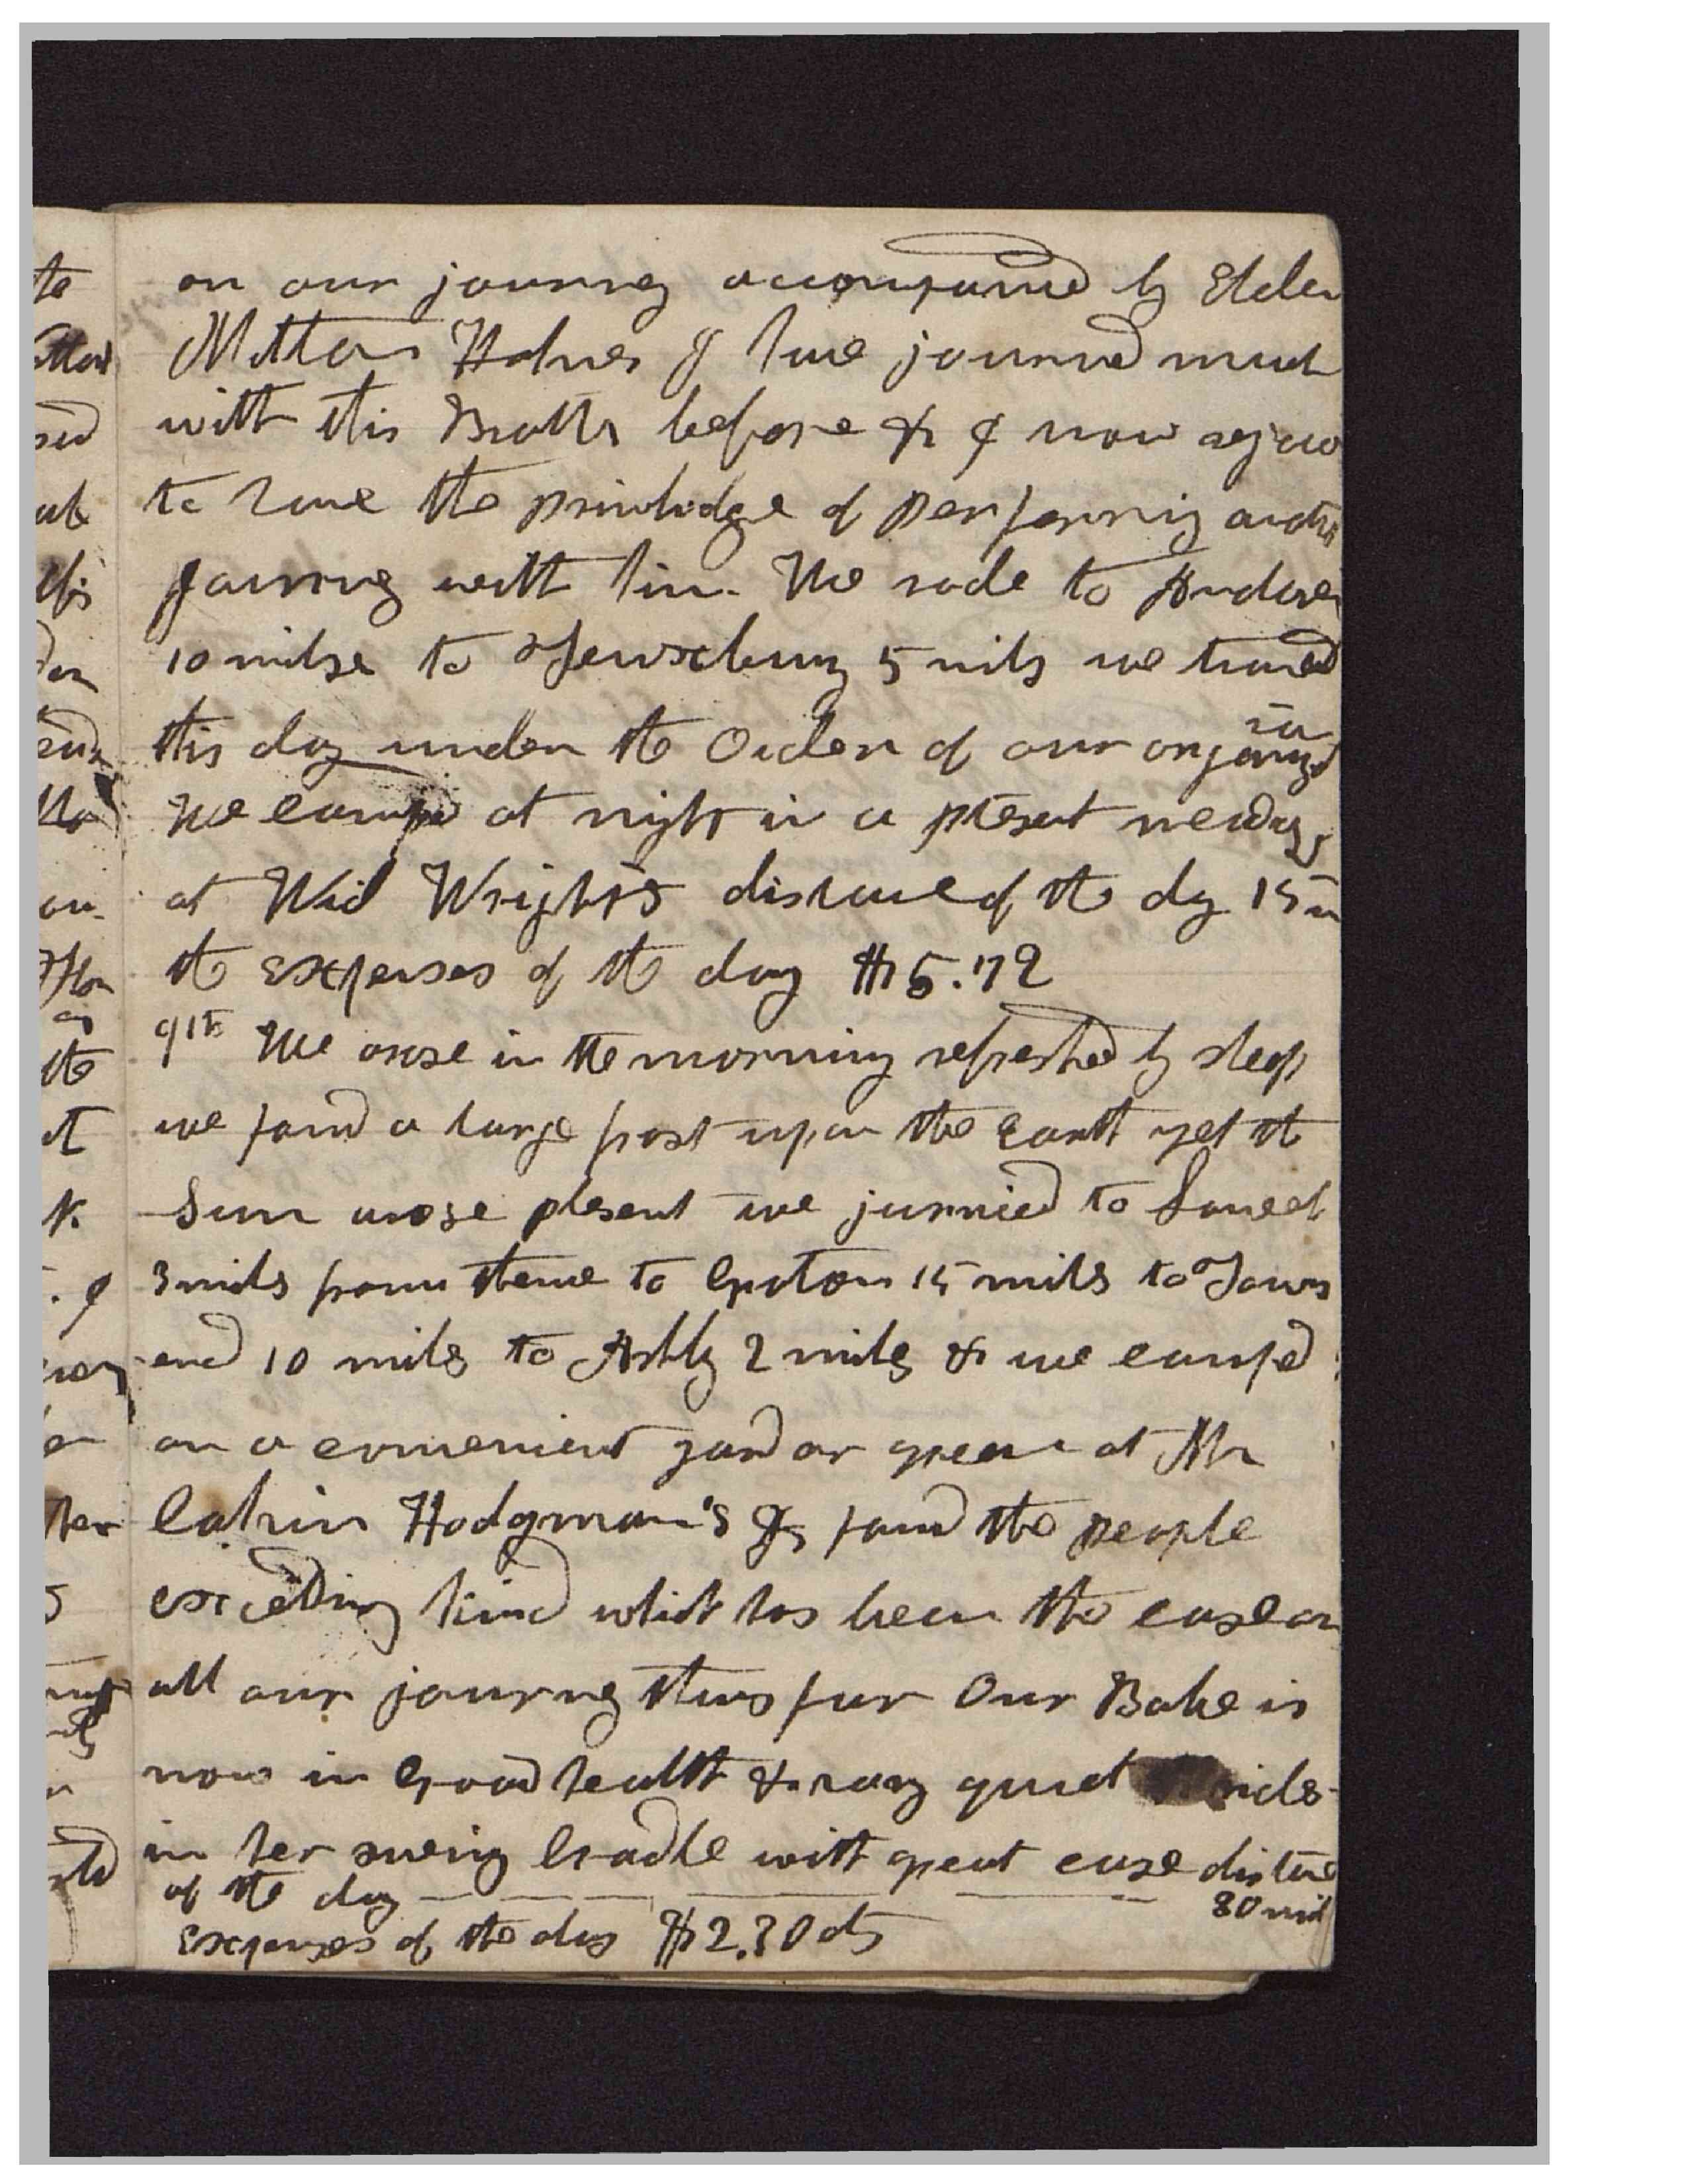 on our journey accompanied by Elder
Milton Holmes I have journed much
with this Brother before & I now rejoice
to have the privilodge of performing another
journey with him. We rode to Andover
10 milse to Tewxsbury 5 mils we traveled
this day under the Order of our organized
za
We camped at night in a plesent meadow
at Wid Wrights distance of the day 15 m
the expenses of the day $5.72
9th We arose in the morning refreshed by sleep
we found a large frost upon the earth yet the
Sun arose plesent we jurnied to Lowell
3 mils from thence to Groton 15 mils to Towns
end 10 mils to Ashby 2 mils & we camped
on a convenient yard or green at Mr
Calvin Hodgman's & found the people
exceeding kind which has been the case on
all our journey thus far Our Babe is
now in good health & vary quiet rides
in her swing Cradle with great ease distance
of the day 30 mil
Expenses of the day $2.30 cts
te
sed
ther
the